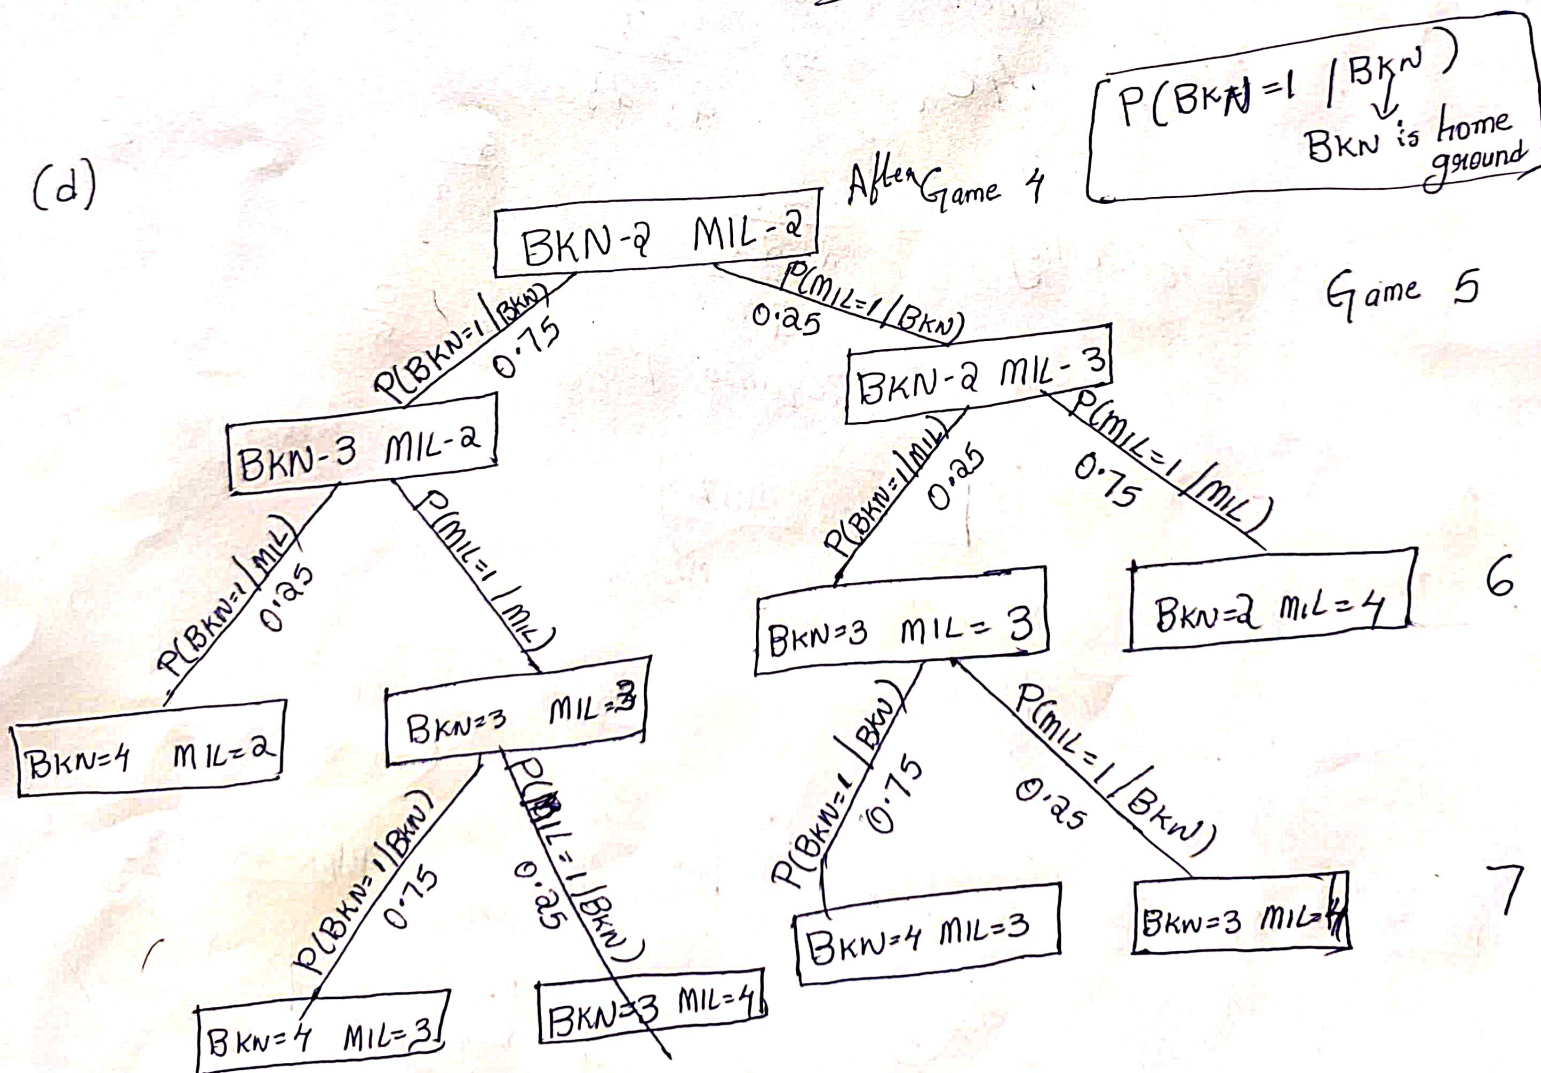 P(BKN=1 / BKN)
BKN is home
ground
(d)
After Game 4
BKN-2 MIL-2
Game 5
P(BKN=1/BKN)
0.75
P(MIL=1/BKN)
0.25
BKN-3 MIL-2
BKN-2 MIL-3
P(BKN=1/MIL)
0.25
P(MIL=1/MIL)
P(BKN=1/MIL)
0.25
P(MIL=1/MIL)
0.75
6
BKN=4 MIL=2
BKN=3 MIL=3
BKN=3 MIL=3
BKN=2 MIL=4
P(BKN=1/BKN)
0.75
P(MIL=1/BKN)
0.25
P(BKN=1/BKN)
0.75
P(MIL=1/BKN)
0.25
7
BKN=4 MIL=3
BKN=3 MIL=4
BKN=4 MIL=3
BKN=3 MIL=4